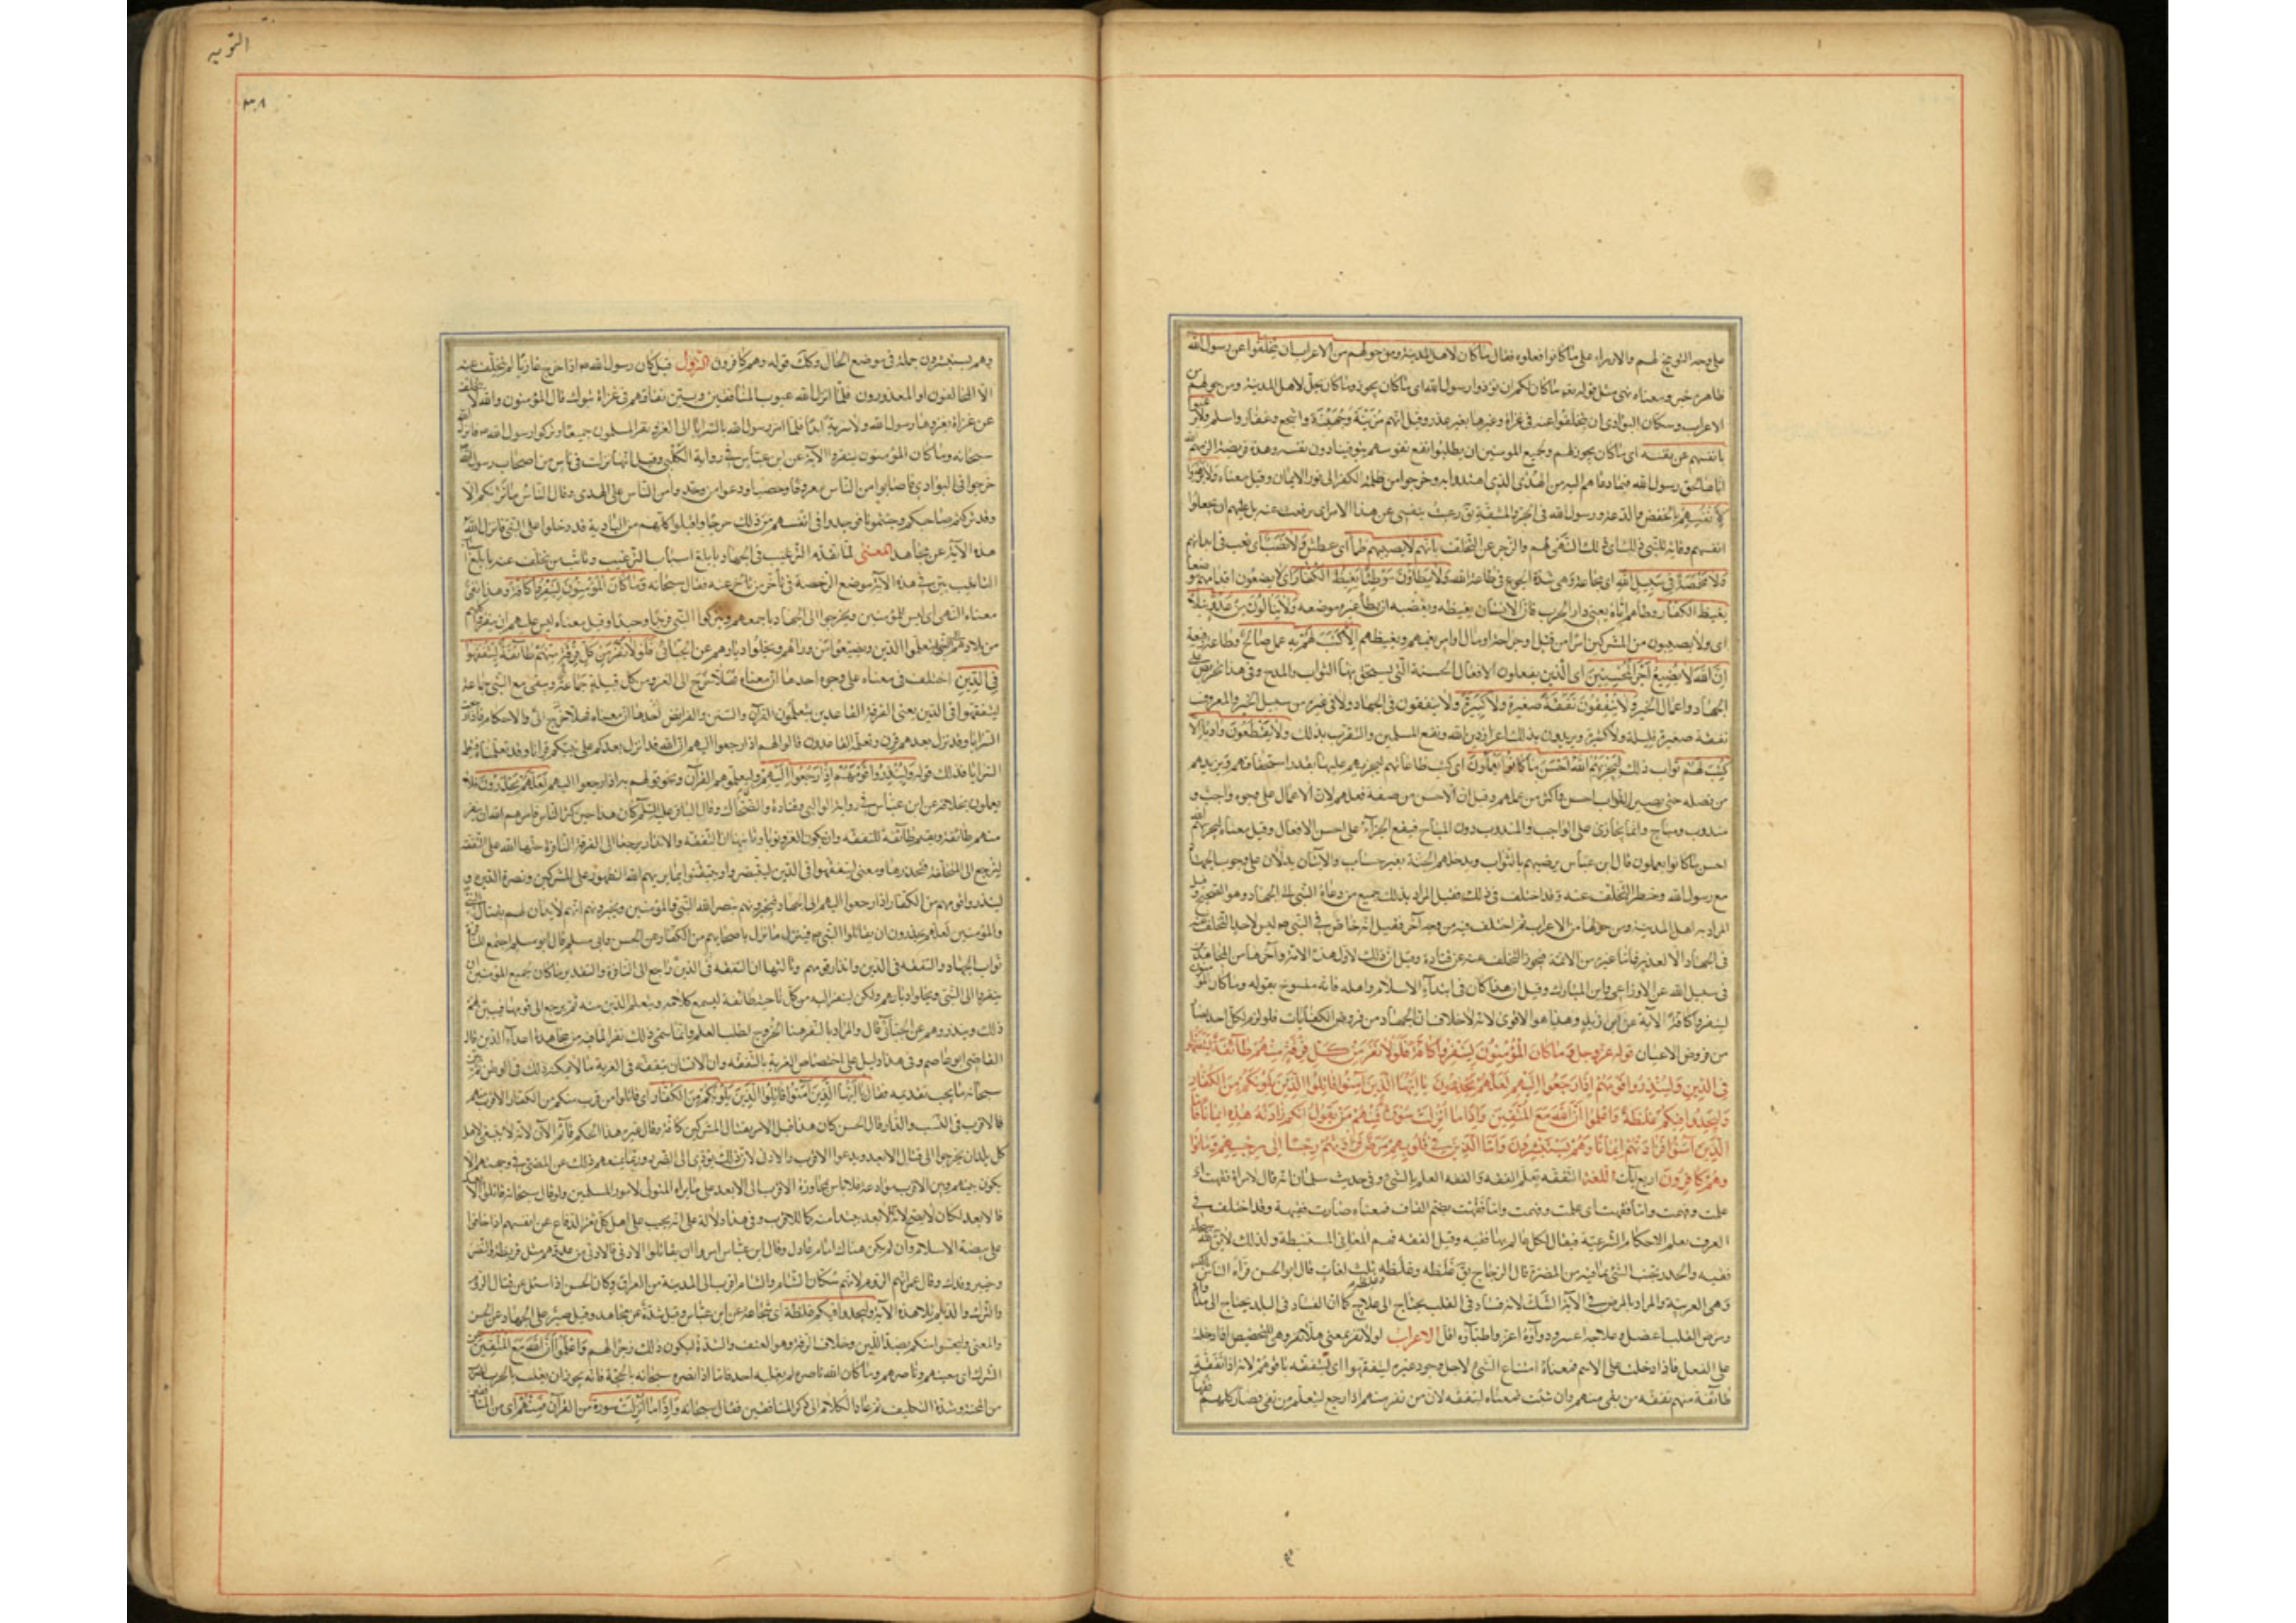 على وجه التوبيخ لهم والازراء على ما كانوا فعلوه فقال ما كان لاهل المدينة ومن حولهم من الاعراب ان يتخلفوا عن رسول الله
ظاهره خبر ومعناه نهى مثل قوله ما كان لكم ان تؤذوا رسول الله اى ما كان يجوز وما كان يحل لاهل المدينة ومن حولهم من
الاعراب وسكان البوادى ان يتخلفوا عنه فى غزاة وغيرها بغير عذر وقيل انهم مزينة وجهينة واشجع وغفار واسلم ولا يرغبوا
بانفسهم عن نفسه اى ما كان يجوز لهم ولجميع المومنين ان يطلبوا نفع نفوسهم بتوقيتها دون نفسه وهذه فريضة الزمهم الله
اياها لحق رسول الله فيما دعاهم اليه من الهدى الذى اهتدوا به وخرجوا من ظلمة الكفر الى نور الايمان وقيل معناه ولا يرضوا
لانفسهم بالخفض والدعة ورسول الله فى الحر والمشقة يق رغبت بنفسى عن هذا الامر اى ترفعت عنه بل عليهم ان يجعلوا
انفسهم وقاية للنبى ذلك اى ذلك النهى لهم والزجر عن التخلف بانهم لا يصيبهم ظمأ اى عطش ولا نصب اى تعب فى ابدانهم
ولا مخمصة فى سبيل الله اى مجاعة وهى شدة الجوع فى طاعة الله ولا يطأون موطئا يغيظ الكفار اى لا يضعون اقدامهم موضعا
يغيظ الكفار وطأهم اياه يعنى دار الحرب فان الانسان يغيظه ويغضبه ان يطأ غيره موضعه ولا ينالون من عدو نيلا
اى ولا يصيبون من المشركين امرا من قتل او جراحة او مال او امر يغمهم ويغيظهم الا كتب لهم به عمل صالح وطاعة رفيعة
ان الله لا يضيع اجر المحسنين اى الذين يفعلون الافعال الحسنة التى يستحق بها الثواب والمدح وفى هذا تحريض على
الجهاد واعمال الخير ولا ينفقون نفقة صغيرة ولا كبيرة ولا ينفقون فى الجهاد ولا فى غيره من سبيل الخير والمعروف
نفقة صغيرة قليلة ولا كثيرة ويريدون بذلك اعزاز دين الله ونفع المسلمين والتقرب بذلك ولا يقطعون واديا الا
كتب لهم ثواب ذلك ليجزيهم الله احسن ما كانوا يعملون اى كتب طاعاتهم ليجزيهم عليها بقدر استحقاقهم ويزيدهم
من فضله حتى يصير الثواب احسن واكثر من عملهم وقيل ان الاحسن من صفة فعلهم لان الاعمال على وجوه واجب و
مندوب ومباح وانما يجازى على الواجب والمندوب دون المباح فيقع الجزاء على احسن الافعال وقيل معناه ليجزيهم الله
احسن ما كانوا يعملون قال ابن عباس يرضيهم بالثواب ويدخلهم الجنة بغير حساب والايتان يدلان على وجوب الجهاد
مع رسول الله وحظر التخلف عنه وقد اختلف فى ذلك فقيل المراد بذلك جميع من دعاه النبى الى الجهاد وهو الصحيح وقيل
المراد به اهل المدينة ومن حولها من الاعراب ثم اختلف فيه من وجه آخر فقيل انه خاص فى النبى ص ليس لاحد التخلف عنه
فى الجهاد الا لعذر فاما غيره من الائمة فيجوز التخلف عنه عن قتادة وقيل ان ذلك لاول هذه الامة وآخرها من المجاهدين
فى سبيل الله عن الاوزاعى وابن المبارك وقيل ان هذا كان فى ابتداء الاسلام واهله قليل فانه منسوخ بقوله وما كان المؤمنون
لينفروا كافة الآية عن ابن زيد وهذا هو الاقوى لانه لا خلاف ان الجهاد من فروض الكفايات فلو لزم لكل احد لصار
من فروض الاعيان قوله عز وجل وما كان المؤمنون لينفروا كافة فلولا نفر من كل فرقة منهم طائفة ليتفقهوا
فى الدين ولينذروا قومهم اذا رجعوا اليهم لعلهم يحذرون يا ايها الذين آمنوا قاتلوا الذين يلونكم من الكفار
وليجدوا فيكم غلظة واعلموا ان الله مع المتقين واذا ما انزلت سورة فمنهم من يقول ايكم زادته هذه ايمانا فاما
الذين آمنوا فزادتهم ايمانا وهم يستبشرون واما الذين فى قلوبهم مرض فزادتهم رجسا الى رجسهم وماتوا
وهم كافرون اربع آيات اللغة التفقه تعلم الفقه والفقه العلم بالشئ وفى حديث سلمان انه قال لامراة فقهت اى
علمت وفهمت واما فقهت بضم القاف فمعناه صارت فقيهة وقد اختلف فى
العرف بعلم الاحكام الشرعية فيقال لكل عالم بها فقيه وقيل الفقه فهم المعانى المستنبطة ولذلك لا يق لله سبحانه
فقيه والحذر تجنب الشئ لما فيه من المضرة قال الزجاج يق غلظة وغلظة وغلظة ثلث لغات قال ابو الحسن قراءة الناس بالكسر
وهى العربية والمراد بالمرض فى الآية الشك لانه فساد فى القلب يحتاج الى علاج كما ان الفساد فى البدن يحتاج الى مداواة
ومرض القلب اعضل وعلاجه اعسر ودواؤه اعز واطباؤه اقل الاعراب لولا نفر بمعنى هلا نفر وهى للتحضيض اذا دخلت
على الفعل فاذا دخلت على الاسم فمعناه امتناع الشئ لاجل وجود غيره ليتفقهوا اى ليتفقه باقوهم لانه اذا تفقهت
طائفة منهم تفقه من بقى منهم وان شئت فمعناه ليتفقه لان من نفر منهم اذا رجع ليتعلم من بقى فصار كلهم فقهاء
التوبه
٣٠٨
وهم يستبشرون جملة فى موضع الحال وكك قوله وهم كافرون النزول قيل كان رسول الله ص اذا خرج غازيا لم يتخلف عنه
الا المخالفون او المعذورون فلما انزل الله عيوب المنافقين وبين نفاقهم فى غزاة تبوك قال المؤمنون والله لا نتخلف
عن غزاة يغزوها رسول الله ولا سرية ابدا فلما امر رسول الله بالسرايا الى الغزو نفر المسلمون جميعا وتركوا رسول الله ص فانزل الله
سبحانه وما كان المؤمنون لينفروا الآية عن ابن عباس فى رواية الكلبى وقيل انها نزلت فى ناس من اصحاب رسول الله
خرجوا فى البوادى فاصابوا من الناس معروفا وخصبا ودعوا من وجدوا من الناس على الهدى وقال الناس ما نراكم الا
وقد تركتم صاحبكم وجئتمونا فوجدوا فى انفسهم من ذلك حرجا واقبلوا كلهم من البادية قد دخلوا على النبى فانزل الله
هذه الآية عن مجاهد المعنى لما تقدم الترغيب فى الجهاد بابلغ اسباب الترغيب وتانيب من تخلف عنه بابلغ اسباب
التانيب بين فى هذه الآية موضع الرخصة فى تأخر من تأخر عنه فقال سبحانه وما كان المؤمنون لينفروا كافة وهذا نفى
معناه النهى اى ليس للمؤمنين ان يخرجوا الى الجهاد باجمعهم ويتركوا النبى فريدا وحيدا وقيل معناه ليس عليهم ان ينفروا كلهم
من بلادهم الى النبى ليتعلموا الدين ويضيعوا من وراءهم ويخلوا ديارهم عن الجبائى فلولا نفر من كل فرقة منهم طائفة ليتفقهوا
فى الدين اختلف فى معناه على وجوه احدها ان معناه فهلا خرج الى الغزو من كل قبيلة جماعة ويبقى مع النبى جماعة
ليتفقهوا فى الدين يعنى الفرقة القاعدين يتعلمون القرآن والسنن والفرايض والاحكام فاذا رجعت
السرايا وقد نزل بعدهم قرآن وتعلمه القاعدون قالوا لهم اذا رجعوا اليهم ان الله قد انزل بعدكم على نبيكم قرانا وقد تعلمناه فيتعلم
السرايا فذلك قوله ولينذروا قومهم اذا رجعوا اليهم وليعلموهم القرآن ويخوفوهم به اذا رجعوا اليهم لعلهم يحذرون فلا
يعملون بخلافه عن ابن عباس فى رواية الوالبى وقتادة والضحاك وقال الباقر عليه السلم كان هذا حين كثر الناس فامرهم الله ان ينفر
منهم طائفة ويقيم طائفة للتفقه وان يكون الغزو نوبا وثانيها ان التفقه والانذار يرجعان الى الفرقة النافرة حثها الله على التفقه
لترجع الى المتخلفة فتحذرها ومعنى ليتفقهوا فى الدين ليتبصروا ويتيقنوا بما يريهم الله من الظهور على المشركين ونصرة الدين و
لينذروا قومهم من الكفار اذا رجعوا اليهم من الجهاد فيخبرونهم بنصر الله النبى والمؤمنين ويخبرونهم انهم لا يدان لهم بقتال النبى
والمؤمنين لعلهم يحذرون ان يقاتلوا النبى ص فينزل بهم ما نزل باصحابهم من الكفار عن الحسن وابى مسلم قال ابو مسلم اجتمع للنافرة
ثواب الجهاد والتفقه فى الدين وانذار قومهم وثالثها ان التفقه فى الدين راجع الى النافرة والتقدير ما كان لجميع المؤمنين ان
ينفروا الى النبى ويخلوا ديارهم ولكن لينفر اليه من كل ناحية طائفة ليسمع كلامه ويتعلم الدين منه ثم يرجع الى قومها فيبين لهم
ذلك وينذروهم عن الجبائى قال والمراد بالنفر هنا الخروج لطلب العلم وانما سمى ذلك نفرا لما فيه من مجاهدة اعداء الدين قال
القاضى ابو عاصم وفى هذا دليل على اختصاص الغربة بالتفقه وان الانسان يتفقه فى الغربة ما لا يمكنه ذلك فى الوطن ثم بين
سبحانه ما يجب تقديمه فقال يا ايها الذين آمنوا قاتلوا الذين يلونكم من الكفار اى قاتلوا من قرب منكم من الكفار الاقرب منهم
فالاقرب فى النسب والدار قال الحسن كان هذا قبل الامر بقتال المشركين كافة وقال غيره هذا الحكم قائم الآن لانه لا ينبغى لاهل
كل بلد ان يخرجوا الى قتال الابعد ويدعوا الاقرب والادنى لان ذلك يؤدى الى الضرر وربما يمنعهم ذلك عن المضى فى وجهتهم الا ان
يكون بينهم وبين الاقرب موادعة فلا باس بمجاوزة الاقرب الى الابعد على ما يراه المتولى لامور المسلمين ولو قال سبحانه قاتلوا الابعد
فالابعد لكان لا يصح لانه لا حد للابعد يبتدء منه كما للاقرب وفى هذا دلالة على انه يجب على اهل كل ثغر الدفاع عن انفسهم اذا خافوا
على بيضة الاسلام وان لم يكن هناك امام عادل وقال ابن عباس امروا ان يقاتلوا الادنى فالادنى من عدوهم مثل قريظة والنضير
وخيبر وفدك وقال ابن عمر انهم الروم لانهم سكان الشام والشام اقرب الى المدينة من العراق وكان الحسن اذا سئل عن قتال الروم
والترك والديلم تلا هذه الآية وليجدوا فيكم غلظة اى شجاعة عن ابن عباس وقيل شدة عن مجاهد وقيل صبر على الجهاد عن الحسن
والمعنى وليحسوا منكم بضد اللين وخلاف الرقة وهو العنف والشدة ليكون ذلك زجرا لهم واعلموا ان الله مع المتقين عن
الشرك اى معينهم وناصرهم ومن كان الله ناصره لم يغلبه احد فاما اذا نصره سبحانه بالحجة فانه يجوز ان يغلب بالحرب لضرب
من المحنة وشدة التكليف ثم عاد الكلام الى ذكر المنافقين فقال سبحانه واذا ما انزلت سورة من القرآن فمنهم اى من المنافقين